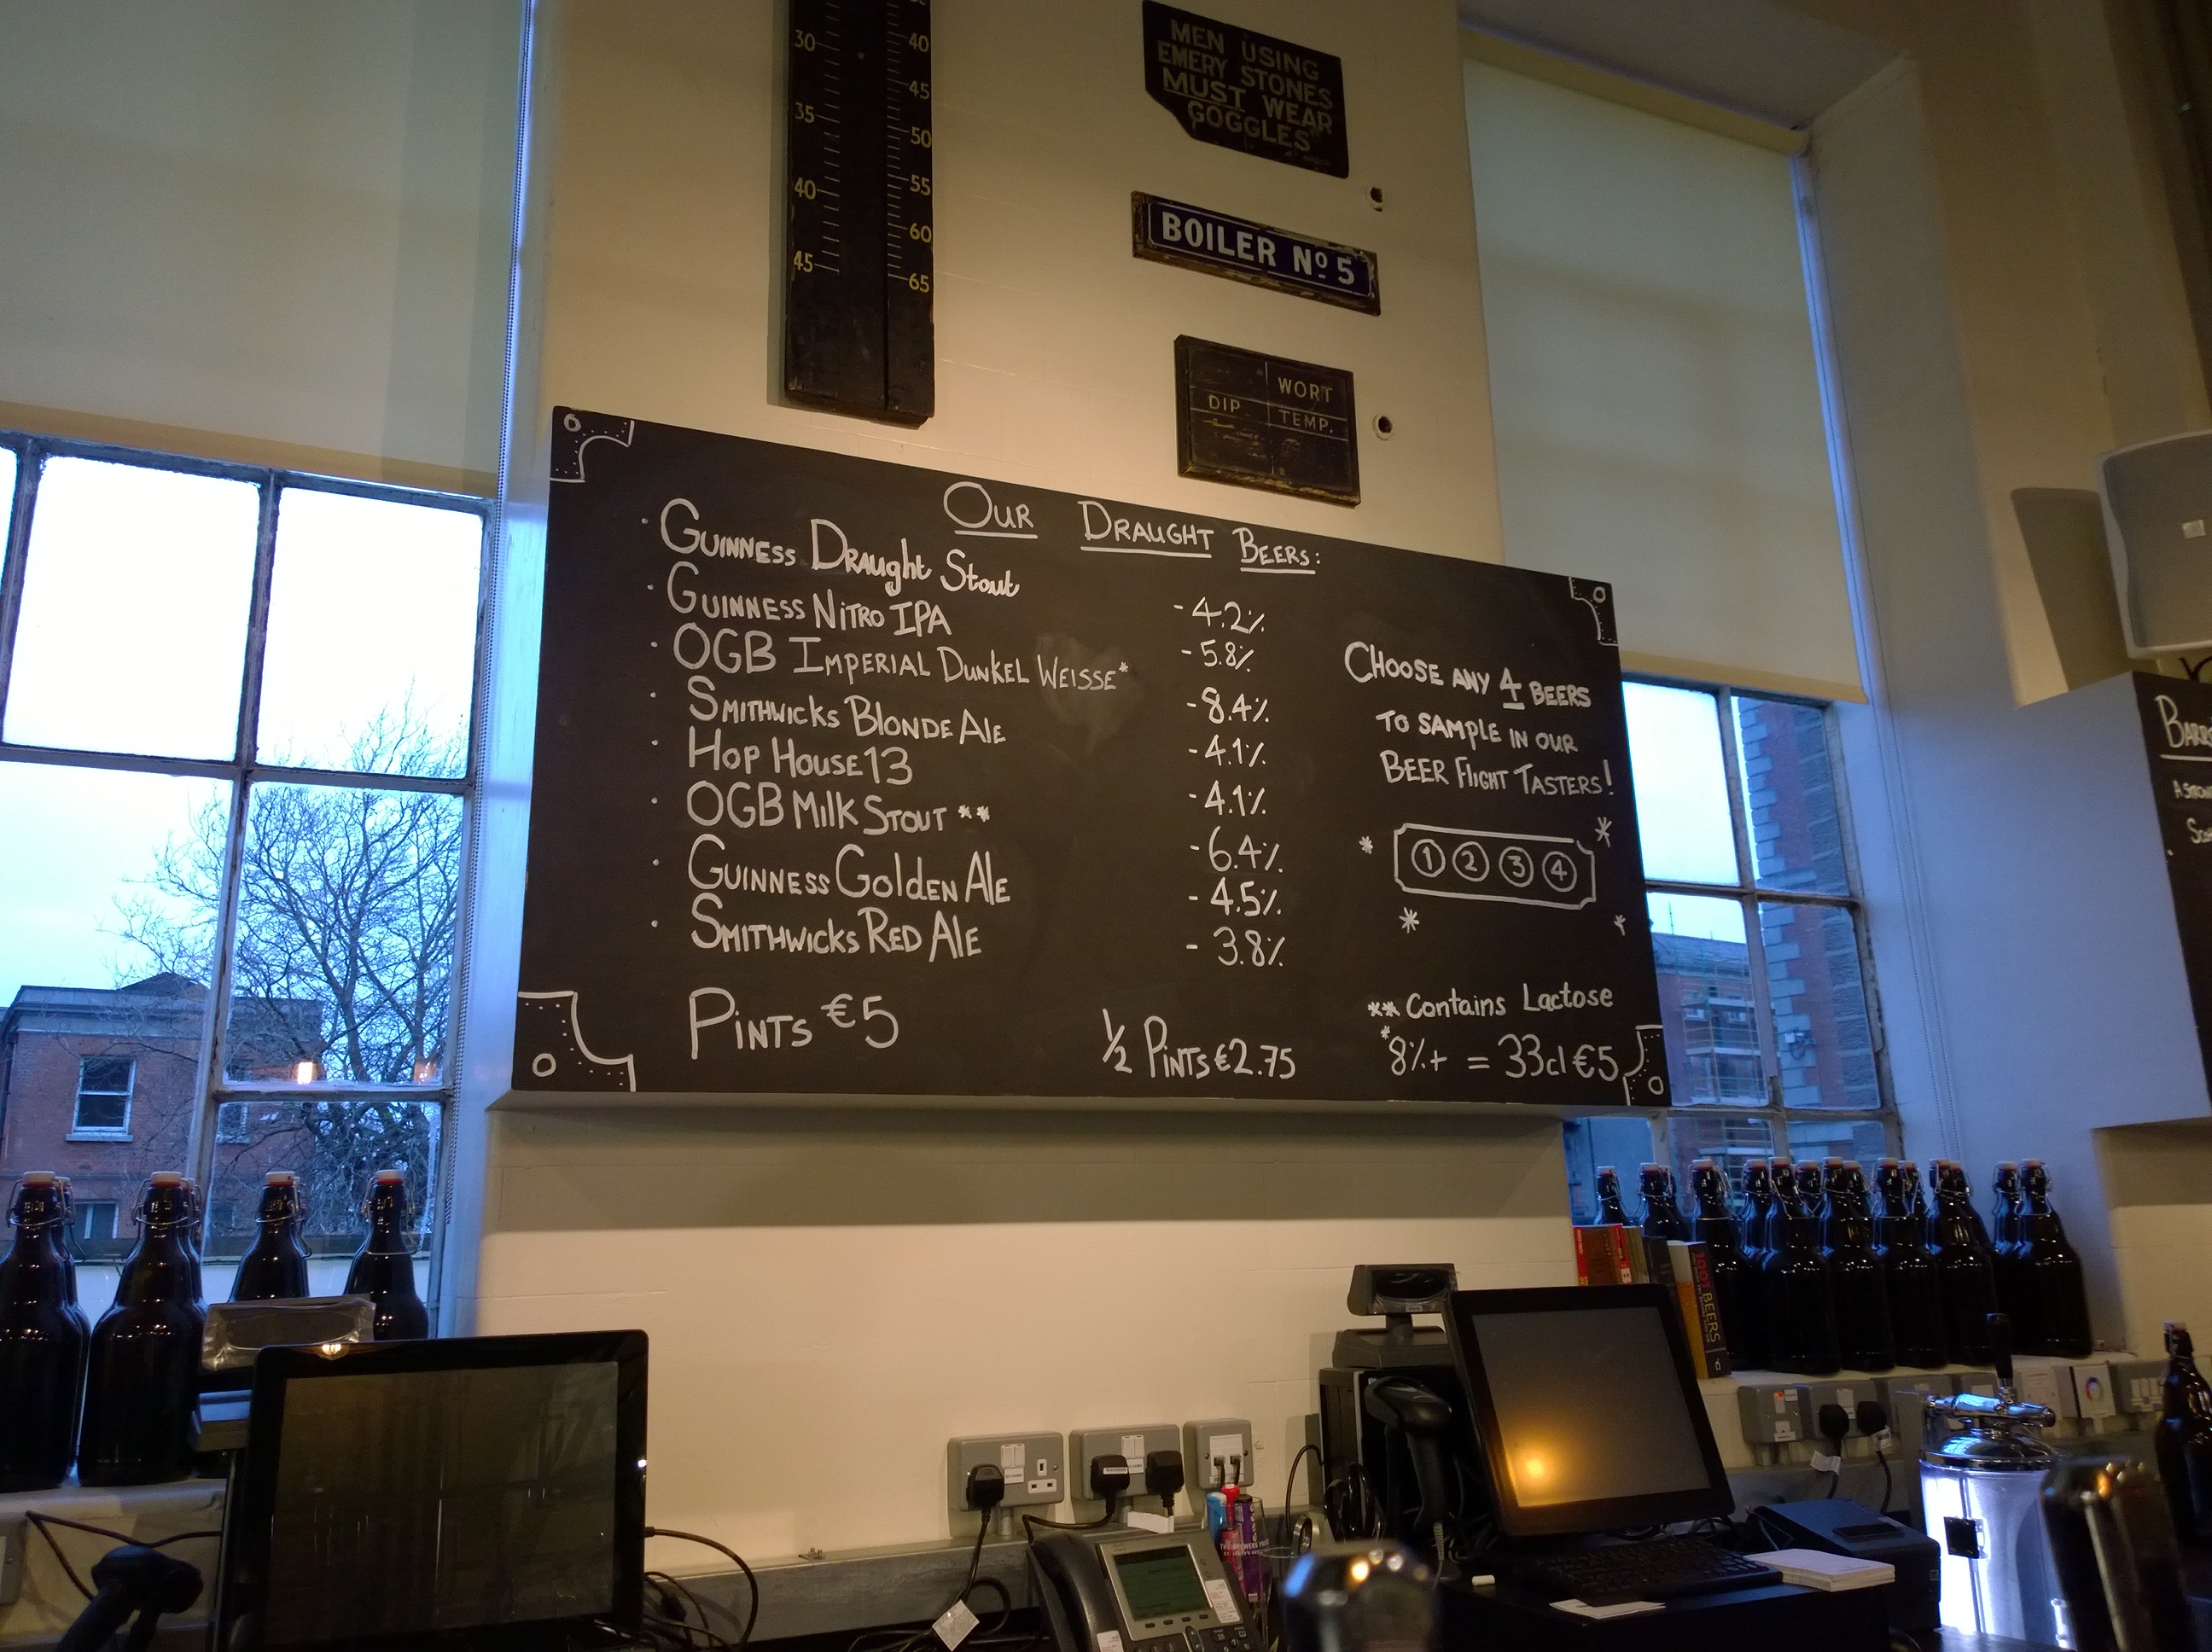 30
35
40
45
40
45
50
55
60
65
MEN USING
EMERY STONES
MUST WEAR
GOGGLES
BOILER Nº 5
WORT
DIP TEMP.
OUR DRAUGHT BEERS:
· GUINNESS DRAught Stout - 4.2%
· GUINNESS NiTRO IPA - 5.8%
· OGB IMPERIAL DUNKEL WEISSE* - 8.4%
· SMITHWicKS BLONDE Ale - 4.1%
· HOP HOUSE 13 - 4.1%
· OGB MilK STOUT ** - 6.4%
· GUINNESS GOldEN Ale - 4.5%
· SMITHWicKS RED Ale - 3.8%
PiNTS €5
1/2 PiNTS €2.75
CHOOSE ANY 4 BEERS
TO SAMPlE IN OUR
BEER FliGHT TASTERS!
1 2 3 4
** Contains Lactose
*8%+ = 33cl €5
1001 BEERS